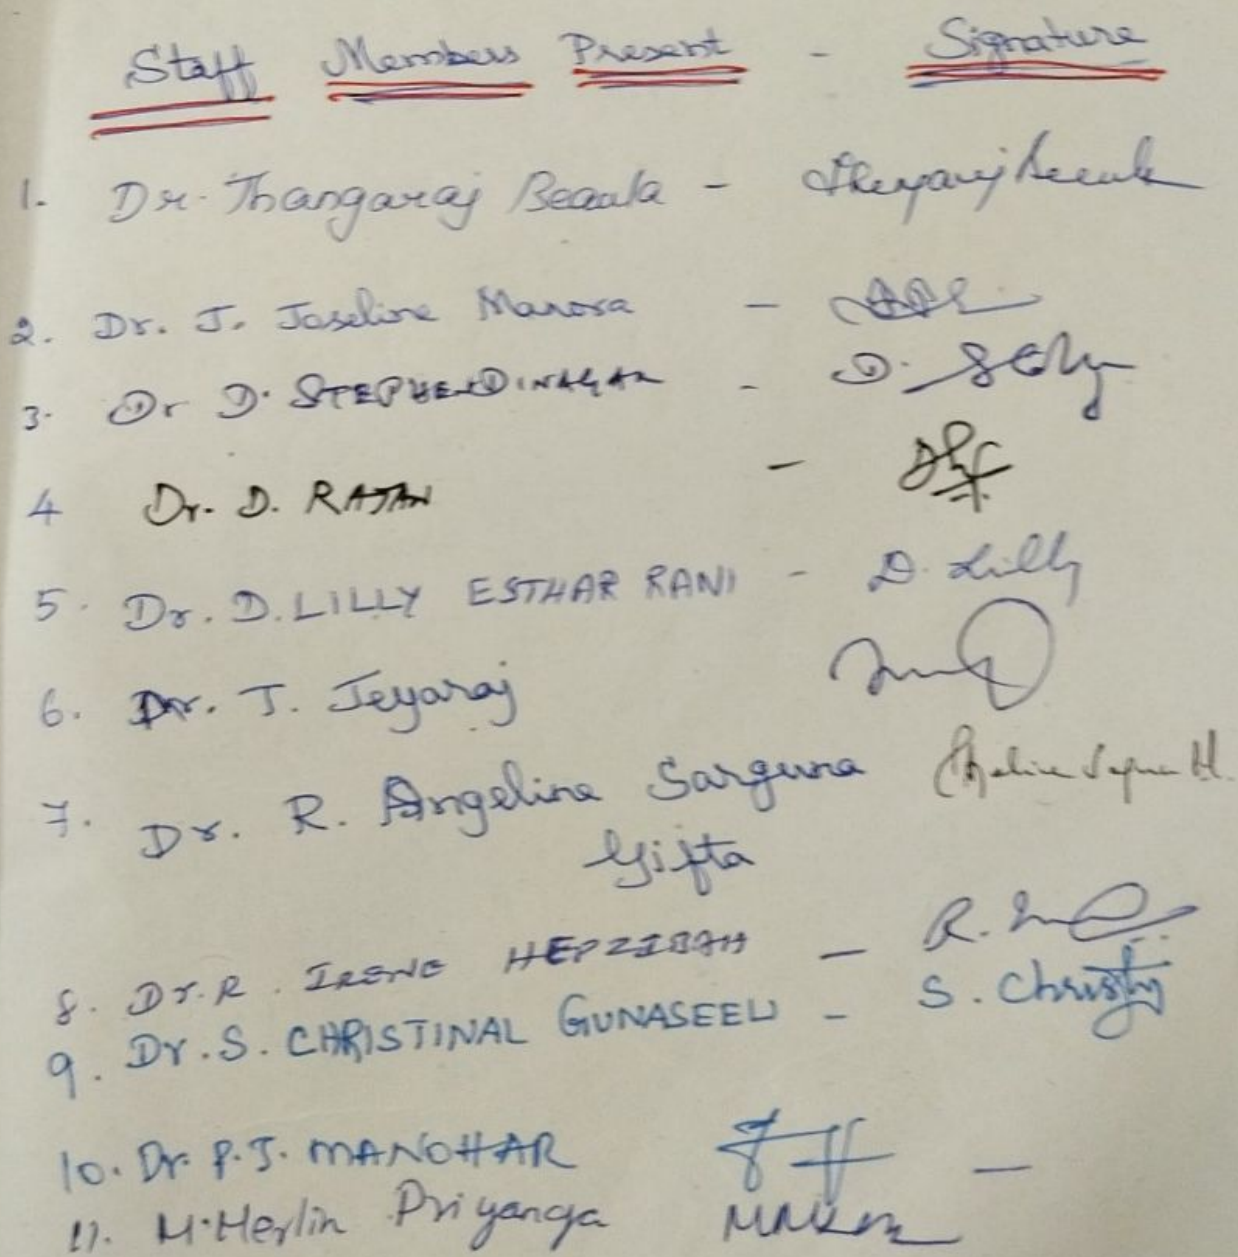 Staff Members Present - Signature
1. Dr. Thangaraj Beaula -
2. Dr. J. Joseline Manora -
3. Dr D. STEPHENDINAGAR - D.
4 Dr. D. RAJAN -
5. Dr. D. LILLY ESTHAR RANI - D. Lilly
6. Dr. T. Jeyaraj
7. Dr. R. Angeline Sarguna
Gifta
8. Dr. R. IRENE HEPZIBAH - R.
9. Dr. S. CHRISTINAL GUNASEELI - S. Christy
10. Dr. P. J. MANOHAR -
11. M. Herlin Priyanga